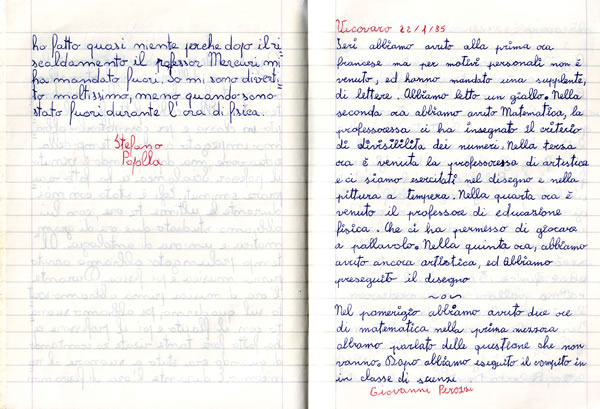 ho fatto quasi niente perche dopo il ri=
scaldamento il professor Mercuri mi
ha mandato fuori. Io mi sono diverti=
to moltissimo, meno quando sono
stato fuori durante l'ora di fisica.
Stefano
Popolla
Vicovaro 22/1/85
Ieri abbiamo avuto alla prima ora
francese ma per motivi personali non è
venuto, ed hanno mandato una supplente,
di lettere. Abbiamo letto un giallo. Nella
seconda ora abbiamo avuto Matematica, la
professoressa ci ha insegnato il criterio
di divisibilità dei numeri. Nella tersa
ora è venuta la professoressa di artistica
e ci siamo esercitati nel disegno e nella
pittura a tempera. Nella quarta ora è
venuto il professore di educazione
fisica. Che ci ha permesso di giocare
a pallavolo. Nella quinta ora, abbiamo
avuto ancora artistica, ed Abbiamo
preseguito il disegno
Nel pomerigio abbiamo avuto due ore
di matematica nella prima mezzora
abbamo parlato delle questione che non
vanno. Dopo abbiamo eseguito il compito in
in classe di scienze
Giovanni